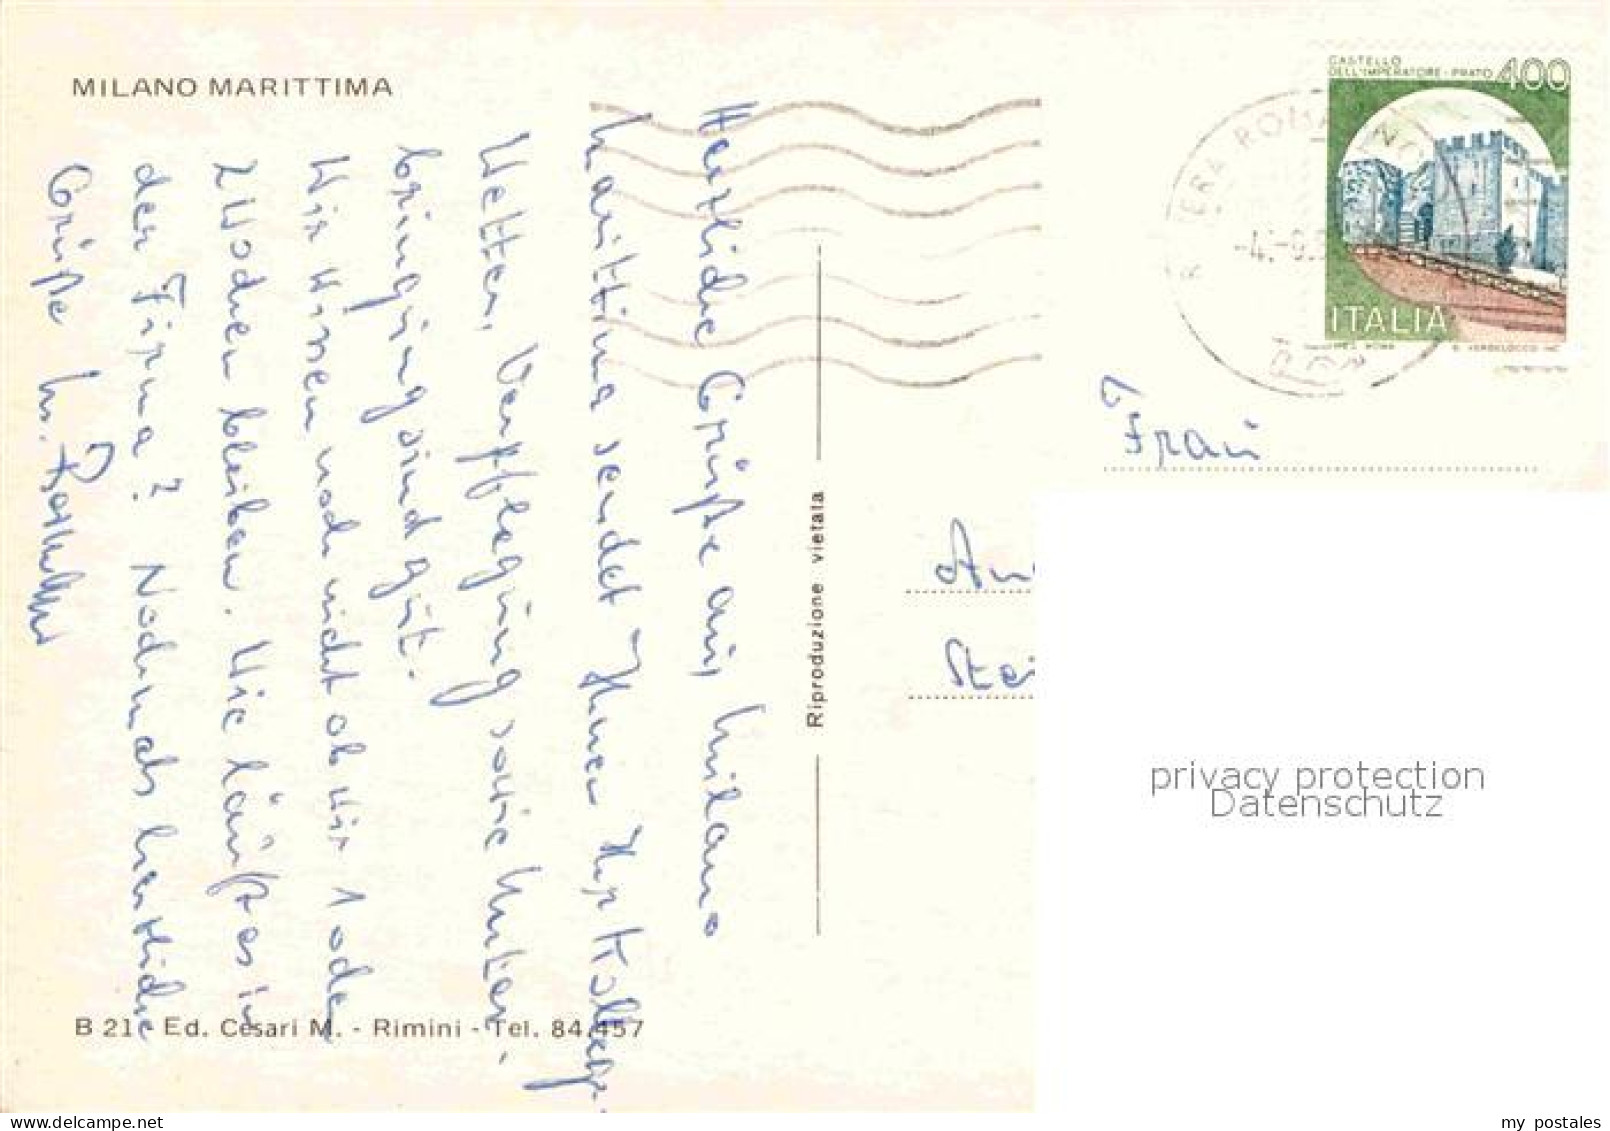 MILANO MARITTIMA
CASTELLO
DELL'IMPERATORE - PRATO 400
ITALIA
RIVIERA ROMAGNO
-4.-9.
Herzliche Grüße aus Milano
Marittima sendet Ihnen
Wetter, Verpflegung sowie Unter-
bringung sind gut.
Wir wissen noch nicht ob wir 1 oder
2 Wochen bleiben. Wie läuft es in
der Firma? Nochmals herzliche
Grüße
Riproduzione vietata
Frau
An
Stei
B 21 Ed. Cesari M. - Rimini - Tel. 84.457
privacy protection
Datenschutz
my postales